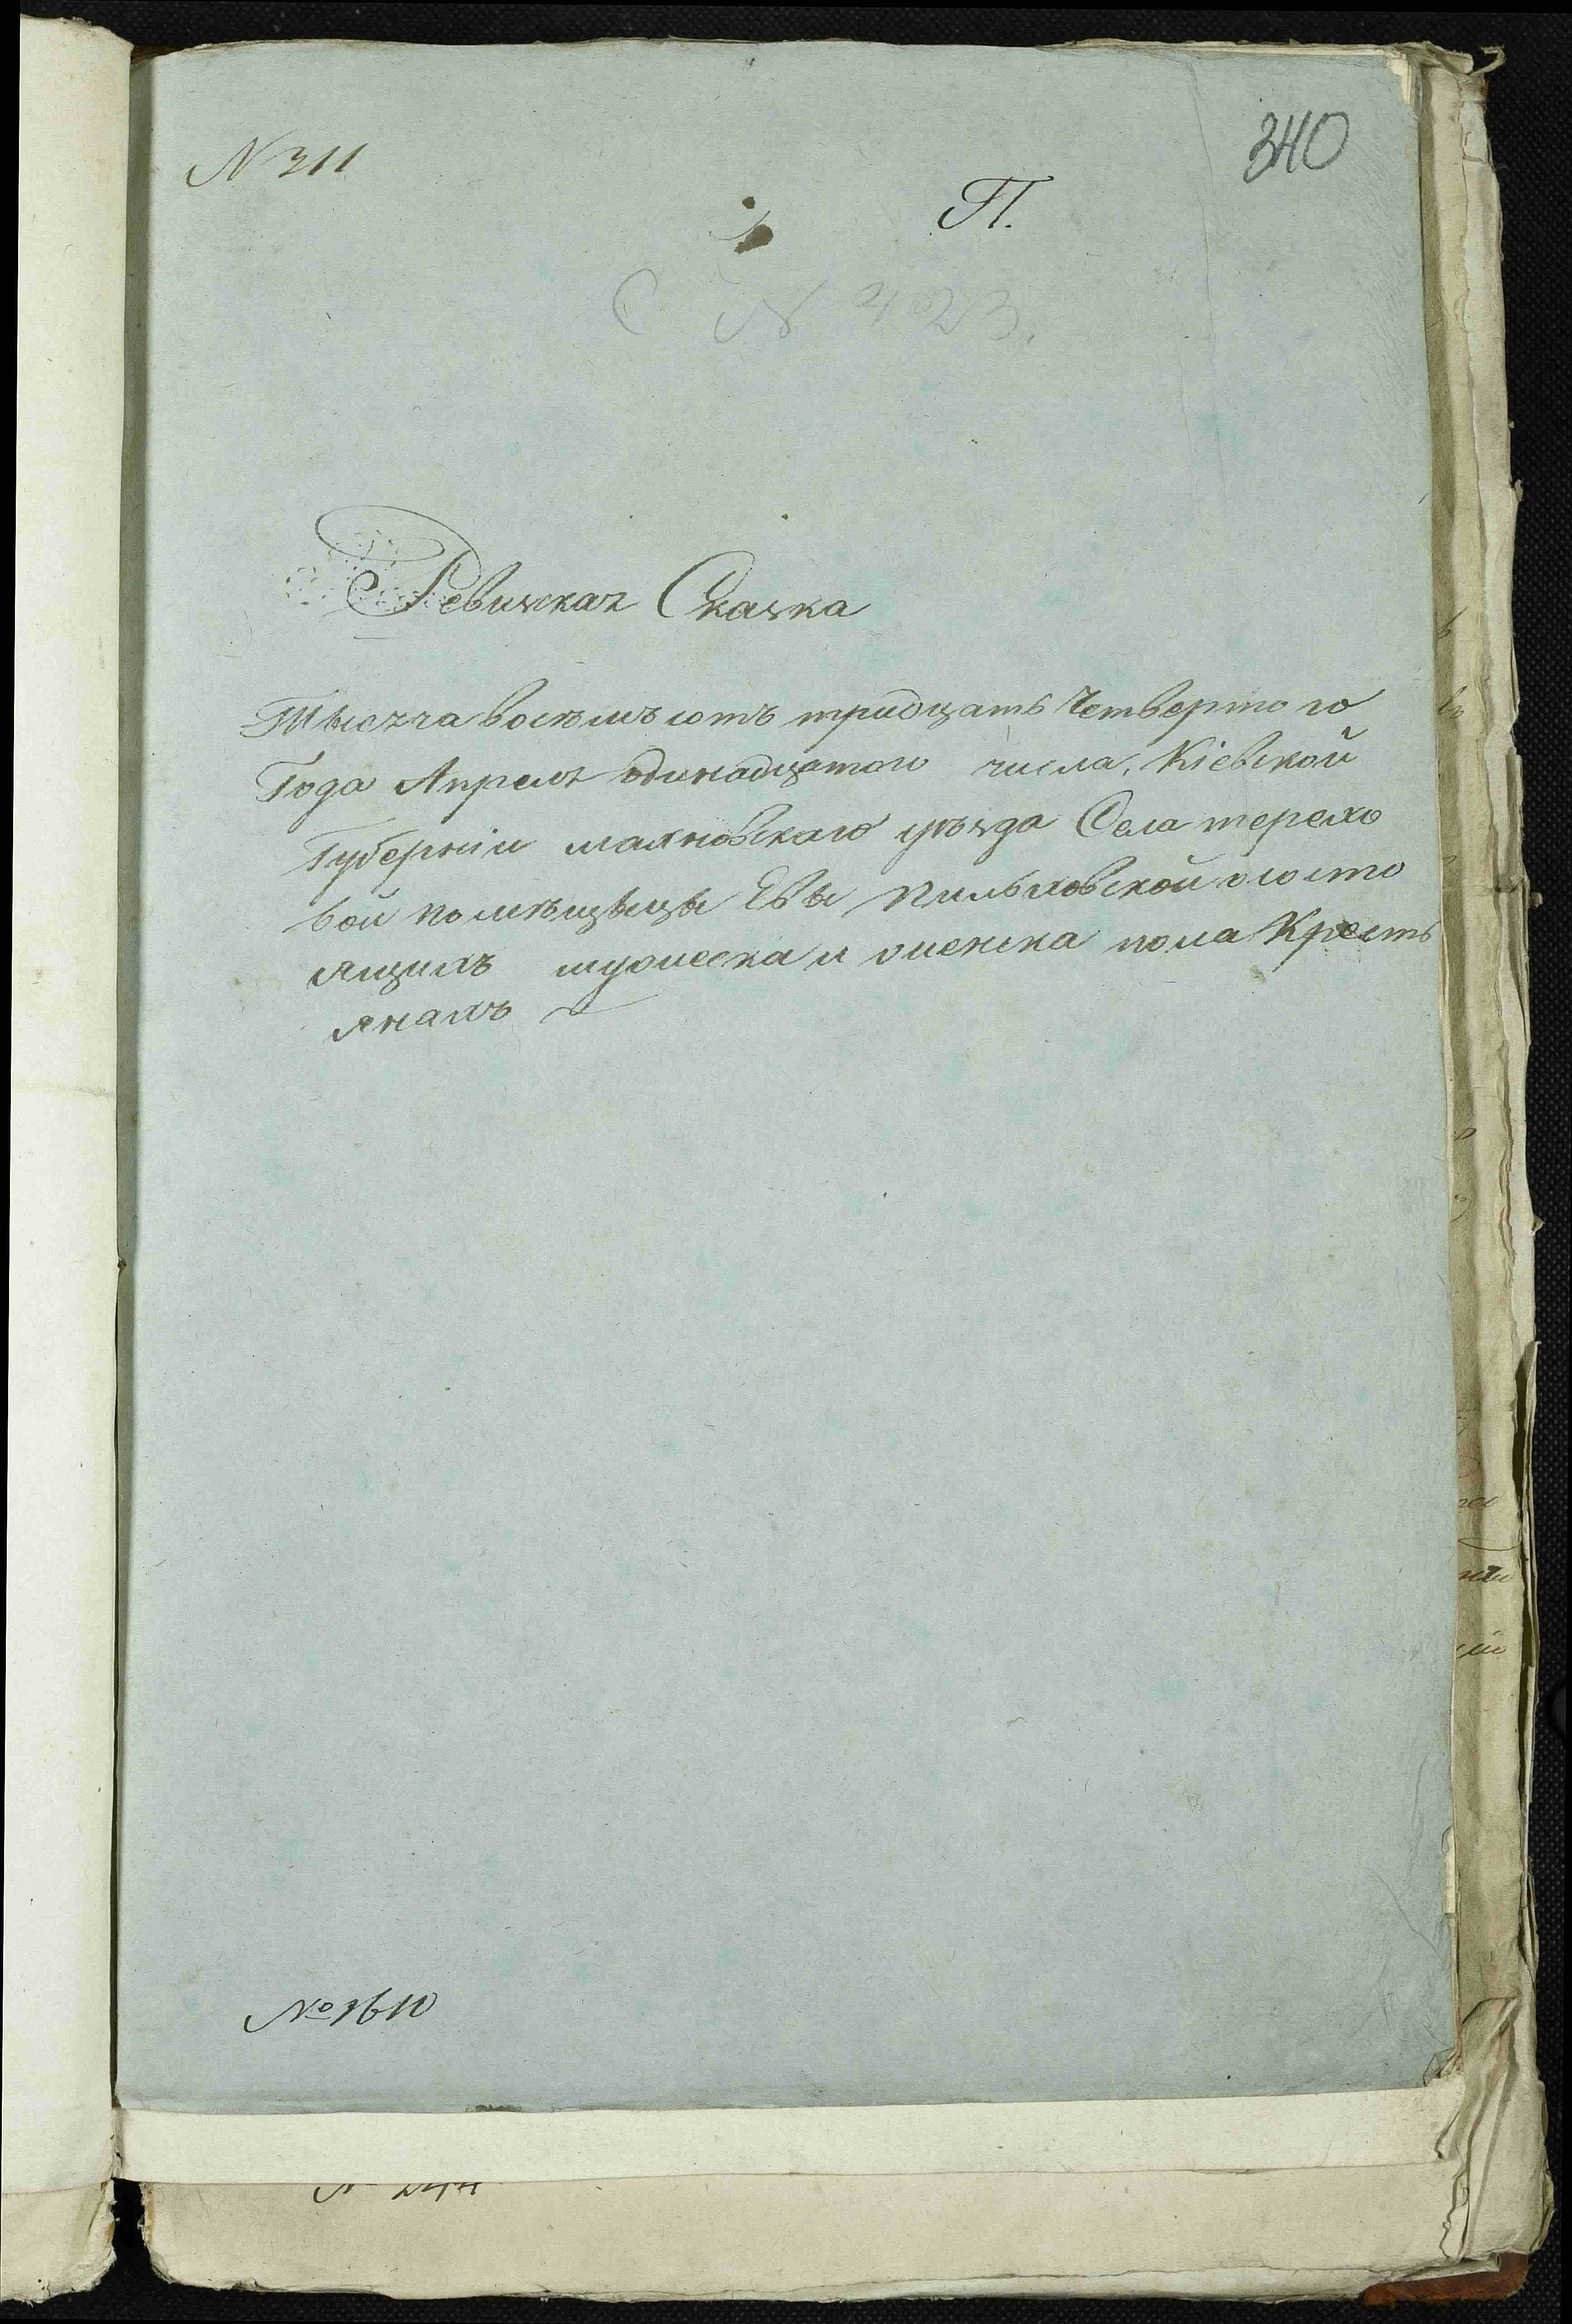 N 311
340
П.
N 423.
Ревизская Сказка
Тысяча восѣмъ сотъ тридцать Четвертого
Года Апреля одинадцатаго числа, Кіевской
Губерніи махновскаго уѣзда Села терехо
вой помѣщицы Евы Пильховской о состо
ящихъ мужеска и женска пола Кресть
янахъ
№ 1610
N 244